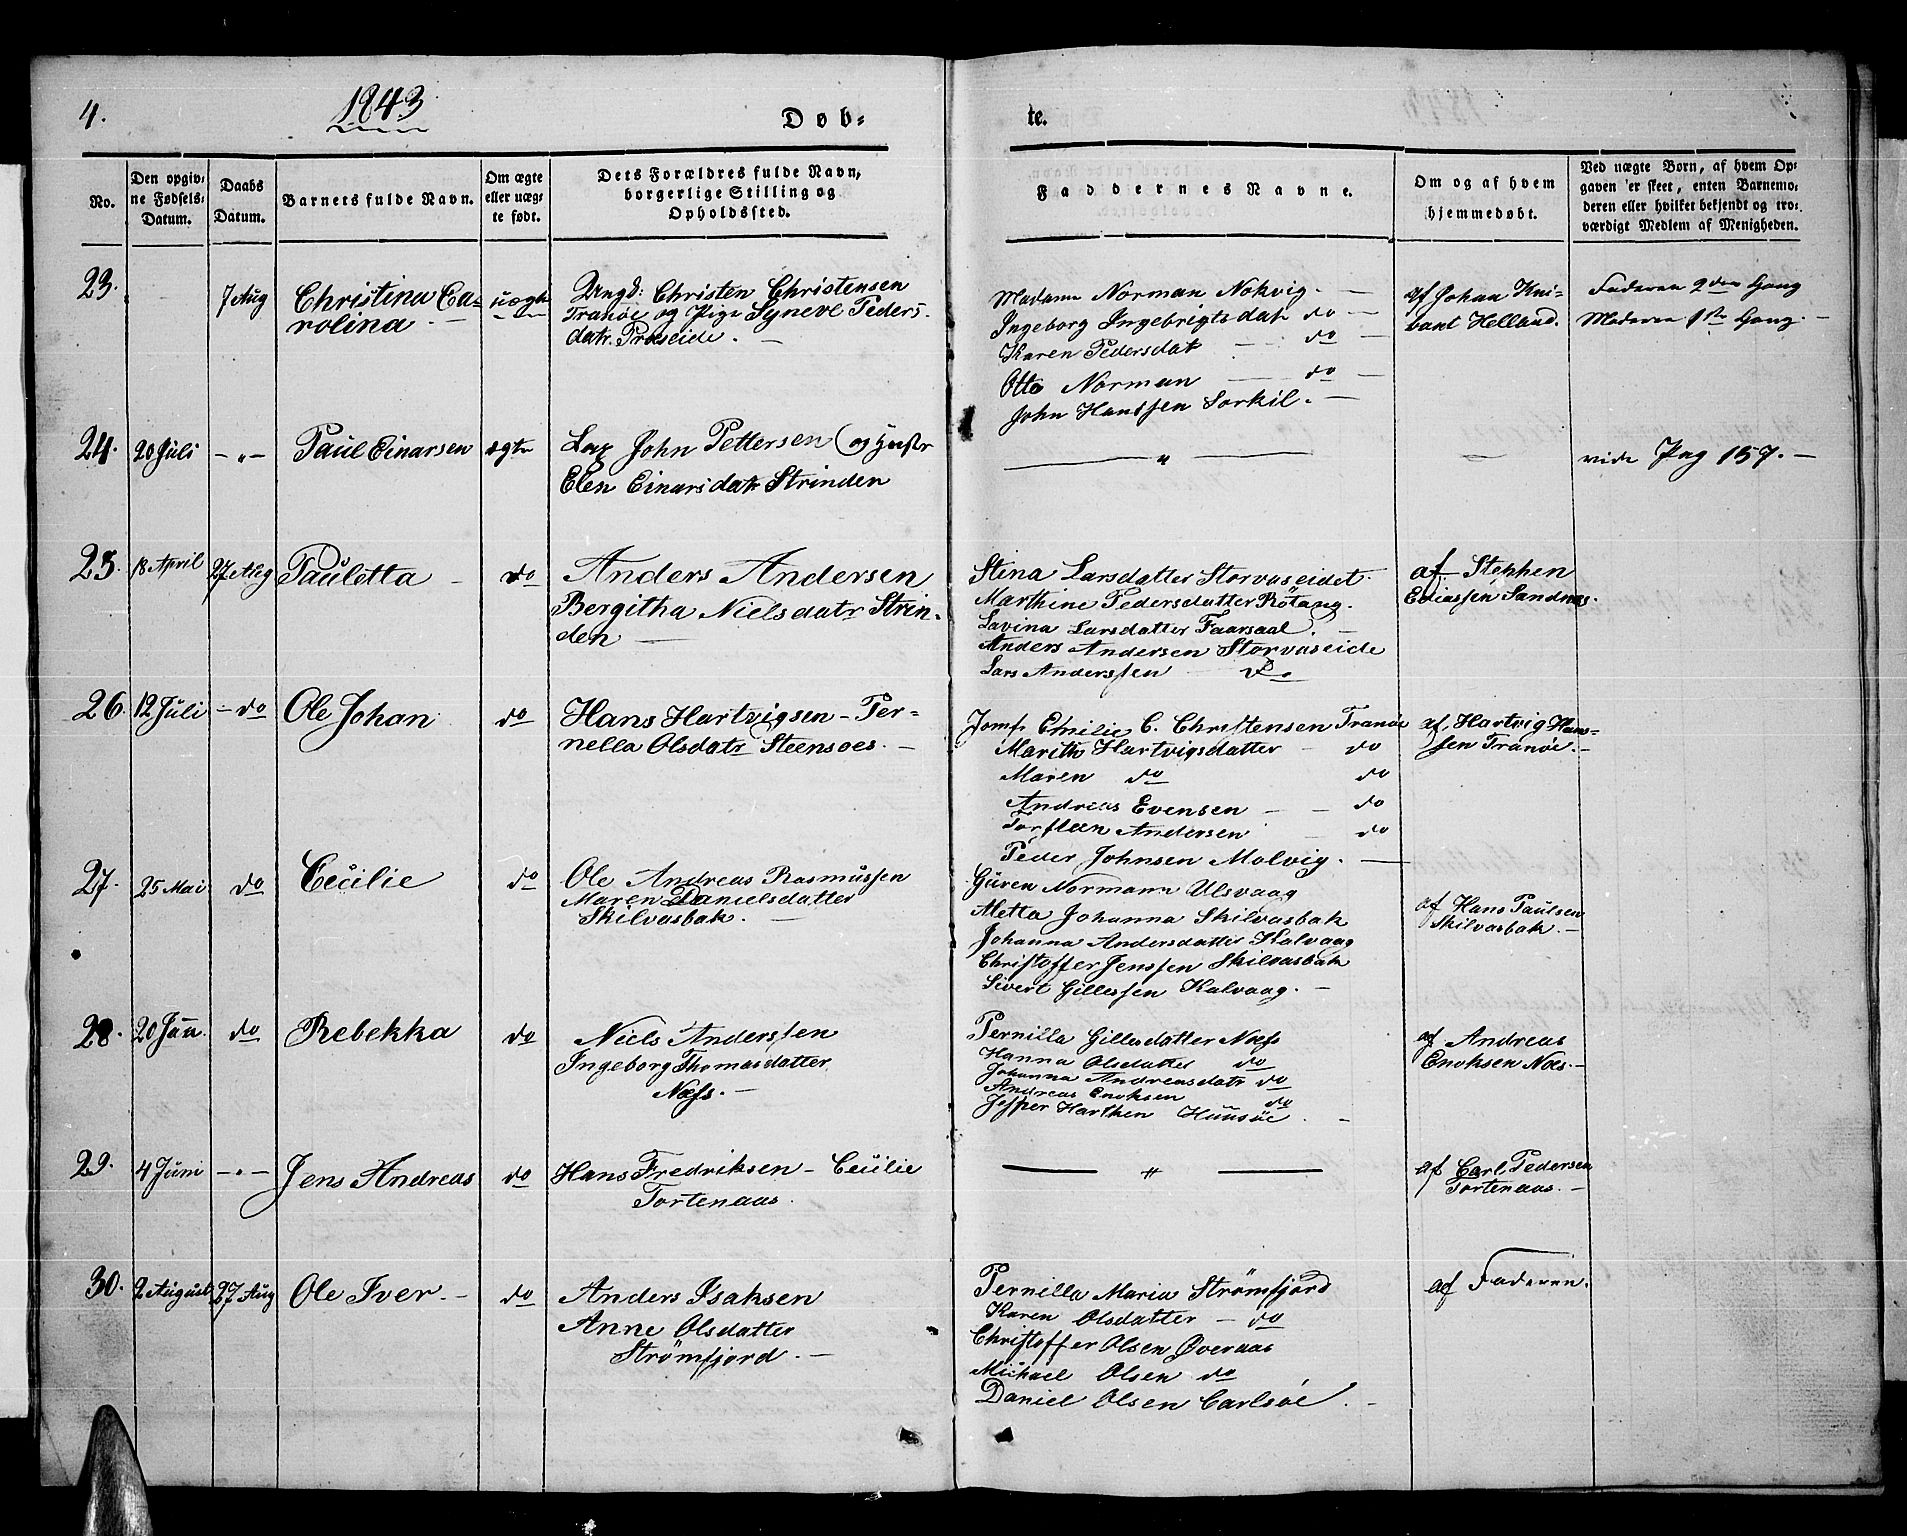 4.
1843
Døb-
te.
No.
Den opgiv-
ne Fødsels-
Datum.
Daabs
Datum.
Barnets fulde Navn.
Om ægte
eller uæg-
te født.
Dets Forældres fulde Navn,
borgerlige Stilling og
Opholdssted.
Faddernes Navne.
Om og af hvem
hjemmedøbt.
Ved uægte Børn, af hvem Op-
gaven er skeet, enten Barnemo-
deren eller hvilket bekjendt og tro-
værdigt Medlem af Menigheden.
23.
7 Aug
Christina Ca-
rolina. -
uægte
Ungd: Christen Christensen
Tranöe og Pige Synevl Peders-
datr. Præseide. -
Madame Norman Nohvig. -
Ingeborg Ingebrigtsdatr do -
Karen Pedersdat - do -
Otto Norman - do -
John Hanssen Sorkil. -
af Johan
Helland.
Faderen 2den Gang
Moderen 1ste Gang. -
24.
20 Juli
- " -
Paul Einarsen
ægte
John Pettersen (og Hustr
Elen Einarsdatr Strinden
"
vide Pag 157. -
25.
18 April
27 Aug
Pauletta -
do
Anders Andersen
Bergitha Nielsdatr Strin-
den -
Stina Larsdatter Storvaseidet.
Marthine Pedersdatter Rötang.
Lavina Larsdatter Faarsaal. -
Anders Andersen Storvaseide
Lars Anderssen do
af Stephen
Eliassen Sandnæs.
26.
12 Juli
- do
Ole Johan
do
Hans Hartvigsen - Per-
nella Olsdatr Steensoes. -
Jomfr Emilie C. Christensen Tranöe
Marith Hartvigsdatter - do
Maren do do
Andreas Evensen - - do
Torsteen Andersen - do
Peder Johnsen Molvig. -
af Hartvig Hans-
sen Tranöe. -
27.
25 Mai
do
Cecilie
do
Ole Andreas Rasmussen
Maren Danielsdatter
Skilvasbak. -
Guren Normann Ulsvaag
Metta Johanna Skilvasbak
Johanna Andersdatter Kalvaag
Christoffer Jenssen Skilvasbak
Sivert Gillessen Kalvaag. -
af Hans Paulsen
Skilvasbak. -
28.
20 Jan.
do
Rebekka
do
Niels Anderssen
Ingeborg Thomasdatter
Næss. -
Pernilla Gillesdatter Næss
Hanna Olsdatter do
Johanna Andreasdatr do
Andreas Enoksen do
Jesper Harthen Huusöe. -
af Andreas
Enoksen Næs. -
29.
4 Juni
- " -
Jens Andreas
do
Hans Fredriksen - Cecilie
Tortenaas.
"
af Carl Pedersen
Tortenaas. -
30.
2 August
27 Aug
Ole Iver. -
do
Anders Isaksen
Anne Olsdatter
Strömfjord. -
Pernilla Maria Strömfjord
Karen Olsdatter - do
Christoffer Olsen Øveraas
Michael Olsen do
Daniel Olsen Carlsöe. -
af Faderen.